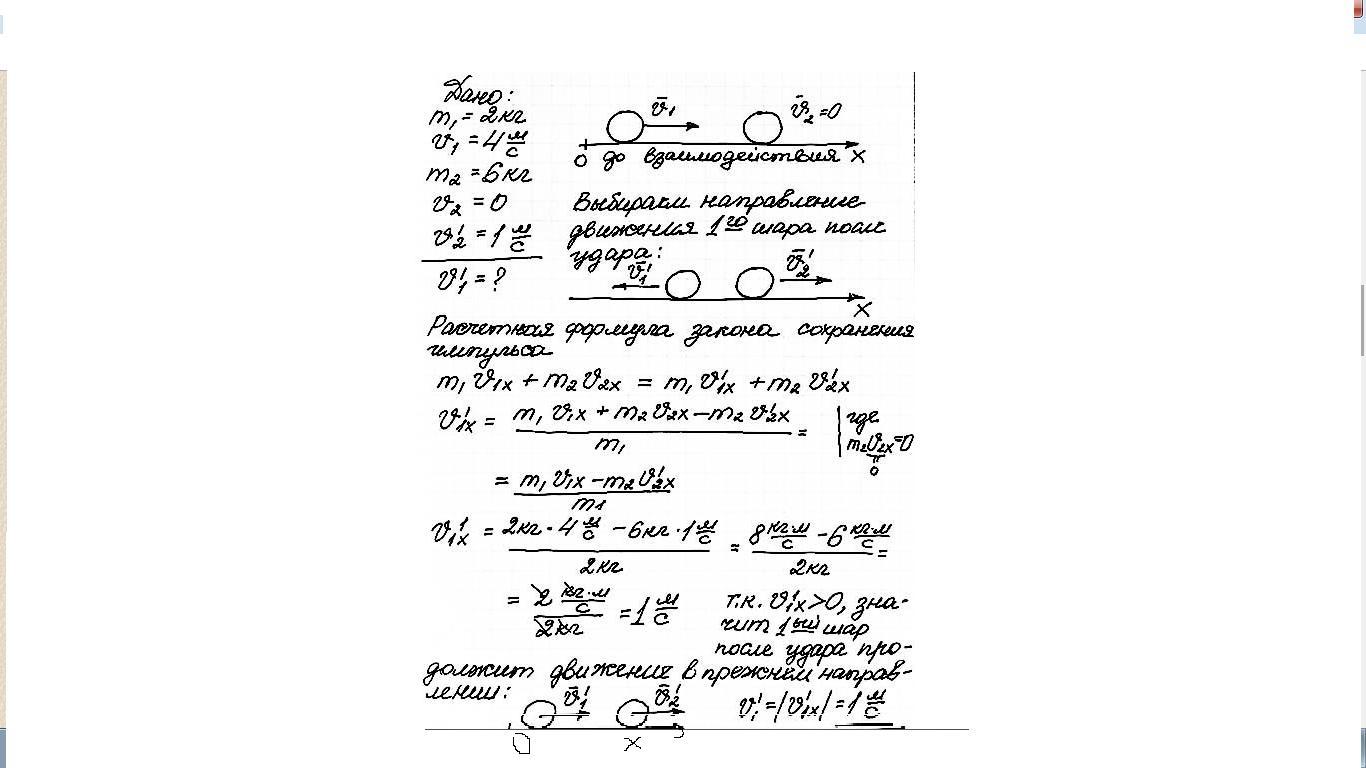 Дано:
m₁ = 2кг
v₁ = 4 м/с
m₂ = 6кг
v₂ = 0
v₂' = 1 м/с
v₁' = ?
v̄₁ v̄₂=0
0 до взаимодействия x
Выбираем направление
движения 1го шара после
удара:
v̄₁' v̄₂'
x
Расчетная формула закона сохранения
импульса
m₁v₁x + m₂v₂x = m₁v₁'x + m₂v₂'x
v₁'x = (m₁v₁x + m₂v₂x − m₂v₂'x)/m₁ = | где
m₂v₂x=0
0
= (m₁v₁x − m₂v₂'x)/m₁
v₁'x = (2кг · 4 м/с − 6кг · 1 м/с)/2кг = (8 кг·м/с − 6 кг·м/с)/2кг =
= (2 кг·м/с)/2кг = 1 м/с
т.к. v₁'x>0, зна-
чит 1ый шар
после удара про-
должит движение в прежнем направ-
лении:
v̄₁' v̄₂' v₁' = |v₁'x| = 1 м/с
0 x